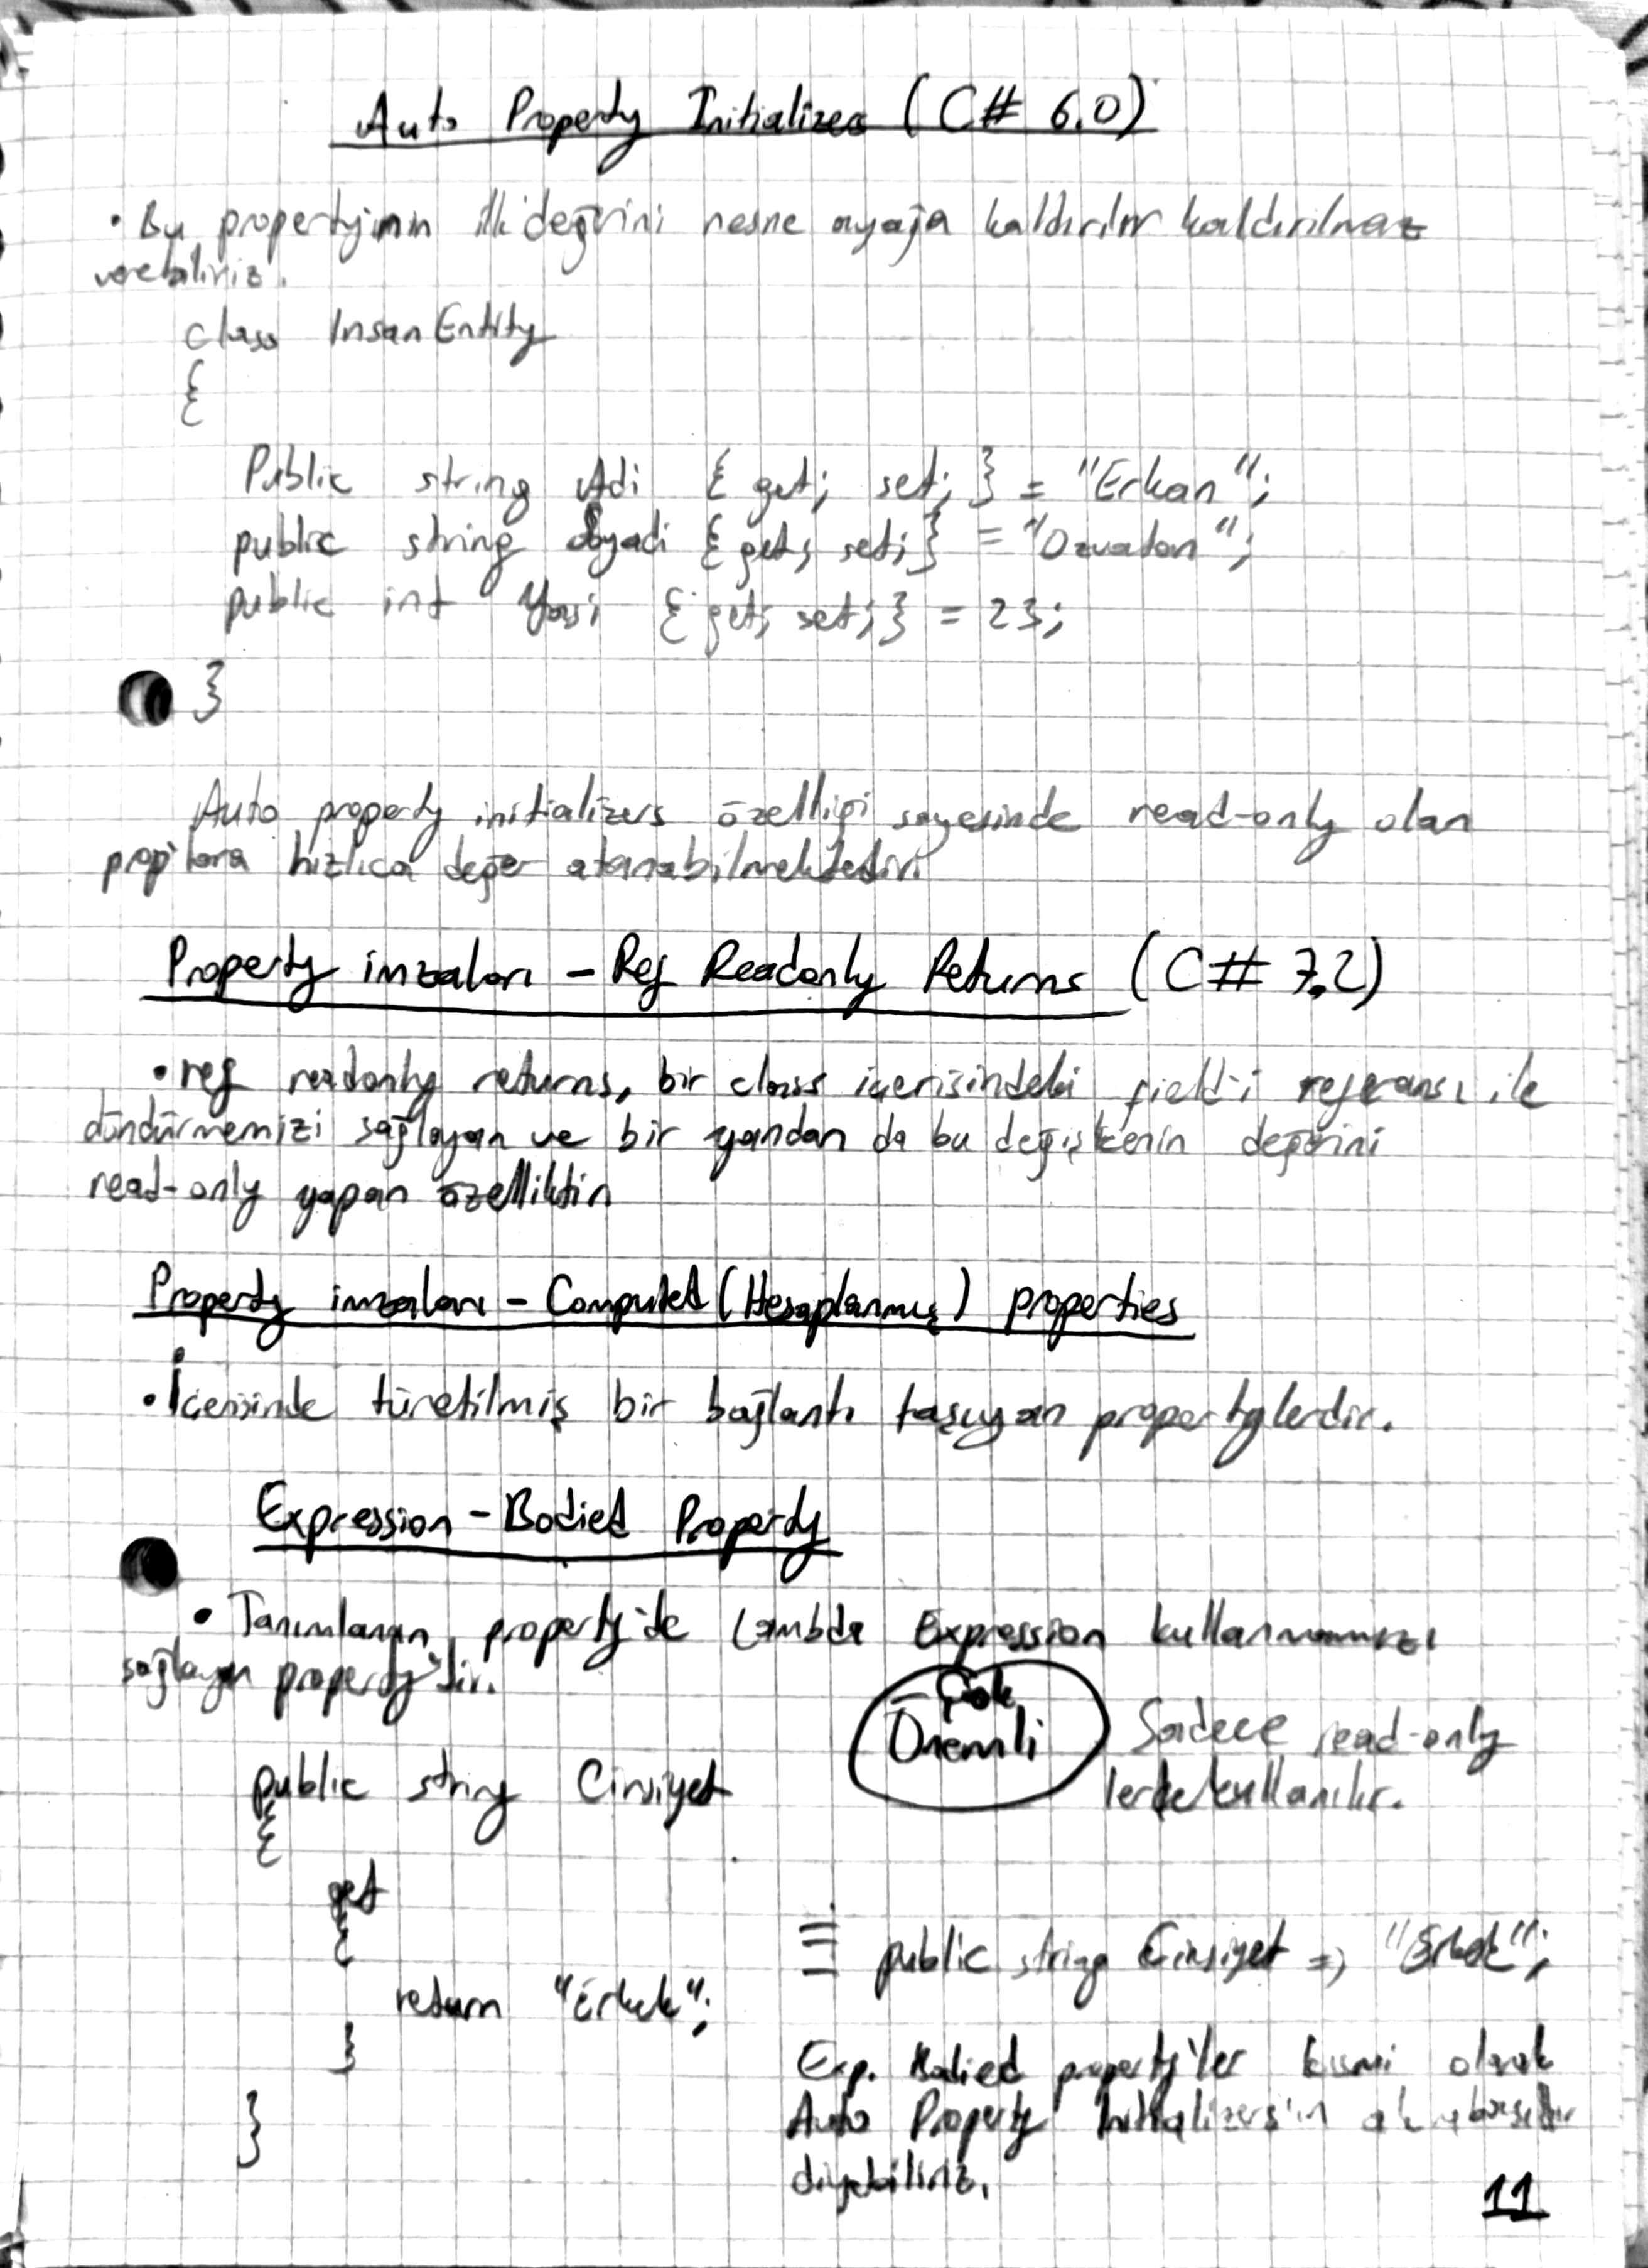 Auto Property Initializers (C# 6.0)
• Bir propertynin ilk değerini nesne ayağa kaldırılır kaldırılmaz
verebiliriz.
class InsanEntity
{
Public string Adi { get; set; } = "Erkan";
public string Soyadi { get; set; } = "Ozvatan";
public int Yasi { get; set; } = 23;
}
Auto property initializers özelliği sayesinde read-only olan
prop'lara hızlıca değer atanabilmektedir.
Property imzaları - Ref Readonly Returns (C# 7.2)
• ref readonly returns, bir class içerisindeki field'i referansı ile
döndürmemizi sağlayan ve bir yandan da bu değişkenin değerini
read-only yapan özelliktir.
Property imzaları - Computed (Hesaplanmış) properties
• İçerisinde türetilmiş bir bağlantı taşıyan propertylerdir.
Expression - Bodied Property
• Tanımlanan property'de Lambda Expression kullanmamızı
sağlayan property'dir.
Çok
Önemli
Sadece read-only
lerde kullanılır.
public string Cinsiyet
{
get
{
return "Erkek";
}
}
≡ public string Cinsiyet => "Erkek";
Exp. Bodied property'ler kısmi olarak
Auto Property Initializers'ın akrabasıdır
diyebiliriz.
11